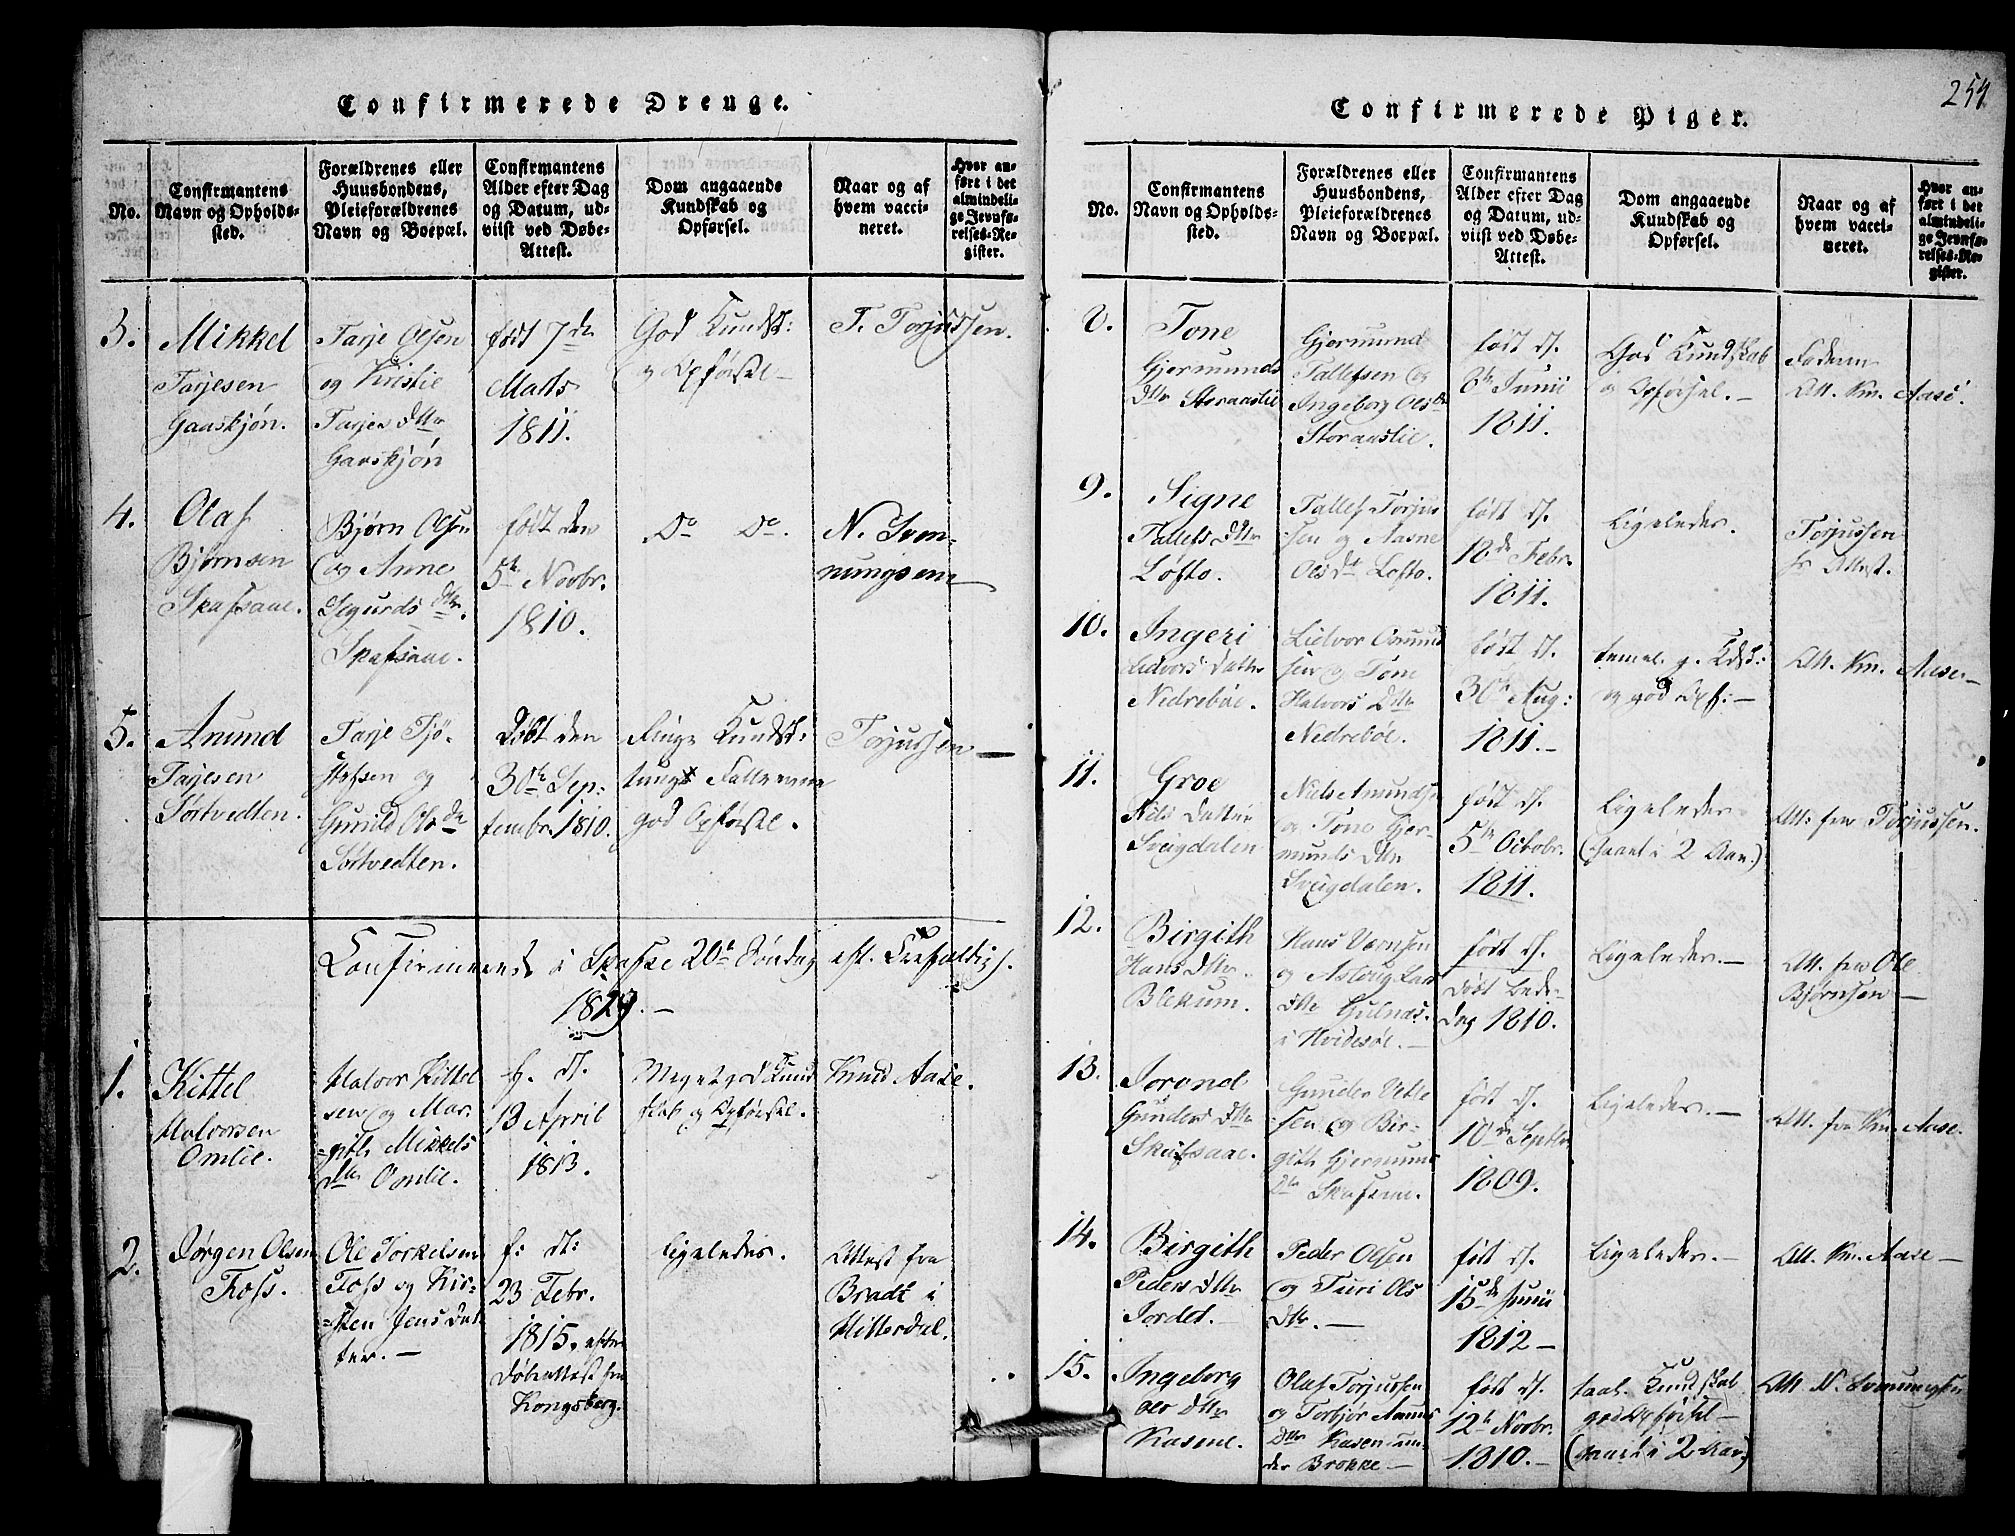 Confirmerede Drenge.
No.
Confirmantens
Navn og Opholds-
sted.
Forældrenes eller
Huusbondens,
Pleieforældrenes
Navn og Boepæl.
Confirmantens
Alder efter Dag
og Datum, ud-
viist ved Døbe-
Attest.
Dom angaaende
Kundskab og
Opførsel.
Naar og af
hvem vacci-
neret.
Hvor an-
ført i det
almindeli-
ge Jevnfø-
relses-Re-
gister.
3.
Mikkel
Tarjesen
Gaaskjøn.
Tarje Olsen
og Kirstie
Tarjes Dttr
Gaaskjön
født 7de
Marts
1811.
God Kundsk:
og Opförsel –
T. Torjussen.
4.
Olaf
Bjørnsen
Skafsaae.
Bjørn Olsen
og Anne
Sigurds Dttr.
Skafsaae.
født den
5te Novbr.
1810.
Do Do.
N. Sven-
nungsen
5.
Anund
Tarjesen
Sortvedten.
Tarje Tjö-
stefsen og
Gunild Ols Dr
Sortvedten.
Döbt den
30te Sep-
tembr. 1810.
Ringe Kundsk:
god Opförsel.
Torjussen –
Confirmerede i Skafse 20de Søndag eft. Trefoldigh.
1829. –
1.
Kittel
Halvorsen
Omlie.
Halvor Kittel
sen og Mar-
git Mikkels
Dttr Omlie.
f. d.
13 April
1813.
Meget god Kund
skab og Opförsel.
Knud Aase.
2.
Jørgen Olsen
Foss.
Ole Torkelsen
Foss og Kir-
sten Jens Dat
ter. –
f: d:
23 Febr.
1815. efter
Döbeattest fra
Kongsberg.
Ligeledes.
Attest fra
Bradt i
Hitterdal.
254
Confirmerede Piger.
No.
Confirmantens
Navn og Opholds-
sted.
Forældrenes eller
Huusbondens,
Pleieforældrenes
Navn og Boepæl.
Confirmantens
Alder efter Dag
og Datum, ud-
viist ved Døbe-
Attest.
Dom angaaende
Kundskab og
Opførsel.
Naar og af
hvem vacci-
neret.
Hvor an-
ført i det
almindeli-
ge Jevnfø-
relses-Re-
gister.
8.
Tone
Gjermunds
Dttr Storaaslie
Gjermund
Tallefsen og
Ingeborg Ols Dr
Storaaslie.
født d.
8de Junii
1811.
God Kundskab
og Opförsel. –
Att. Kn. Aase.
9.
Signe
Tallefs Dttr
Lofto.
Tallef Torjus
sen og Aasne
Ols Dt Lofto.
født d.
18de Febr.
1811.
Ligeledes.
Torjussen
Attest.
10.
Ingeri
Lidvors Datter
Nedreböe.
Lidvor Osmund
sen og Tone
Halvors Dttr
Nedreböe.
født d.
30te Aug:
1811. –
temel. g. Kdsk:
og god Opf: –
Att. Kn. Aase –
11.
Groe
Niels Datter
Sveigdalen
Niels Anunds.
og Tone Gjer-
munds Dttr
Sveigdalen.
født d.
5te Octobr.
1811.
Ligeledes
(gaaet i 2 Aar.)
Att: fra Torjussen.
12.
Birgith
Hans Dttr.
Blekum.
Hans
og
Dttr
i Hvidesöe. –
født d.
Döbt Bede-
dag 1810.
Ligeledes. –
Att. fra Ole
Björnsen –
13.
Jorand
Gunders Dttr
Skafsaae.
Gunder Vetle
sen og Bir-
gith Gjermunds
Dttr Skafsaae.
født d.
10de Septbr
1809.
Ligeledes. –
Att. fra Kn. Aase.
14.
Birgith
Peders Dttr
Jordet.
Peder Olsen
og Turi Ols
Dttr. –
født d.
15de Junii
1812 –
Ligeledes. –
Att. Kn. Aase –
15.
Ingeborg
Ols Dttr
Kasene.
Olaf Torjussen
og Torbjør Aanus
Dttr Kasen un-
der Brokke –
født d.
12te Novbr.
1810. –
taal. Kundskab
god Opförsel –
(gaaet i 2 Aar)
Att N. Svenungsen